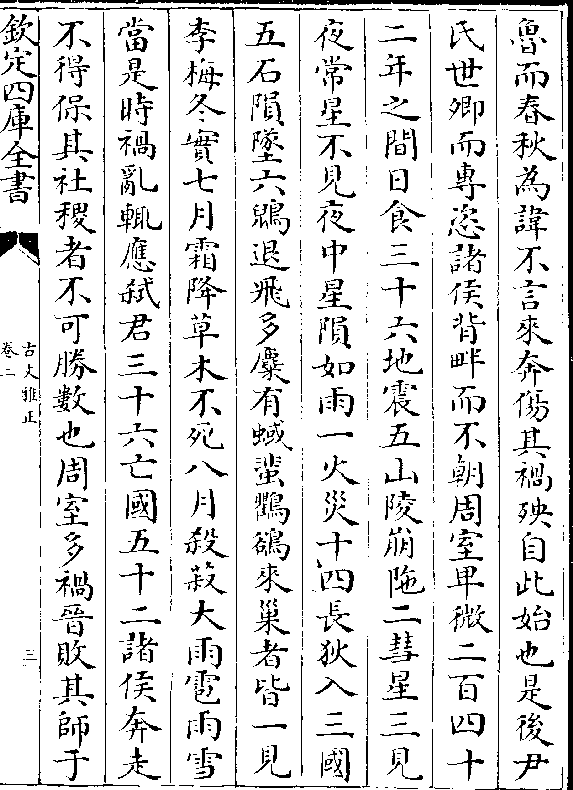 魯而春秋為諱不言來奔傷其禍殃自此始也是後尹
氏世卿而專恣諸侯背畔而不朝周室卑微二百四十
二年之間日食三十六地震五山陵崩阤二彗星三見
夜常星不見夜中星隕如雨一火災十四長狄入三國
五石隕墜六鶂退飛多麋有蜮蜚鸜鵒來巢者皆一見
李梅冬實七月霜降草木不死八月殺菽大雨雹雨雪
當是時禍亂輒應弑君三十六亡國五十二諸侯奔走
不得保其社稷者不可勝數也周室多禍晉敗其師于
欽定四庫全書
古文雅正
卷二
三